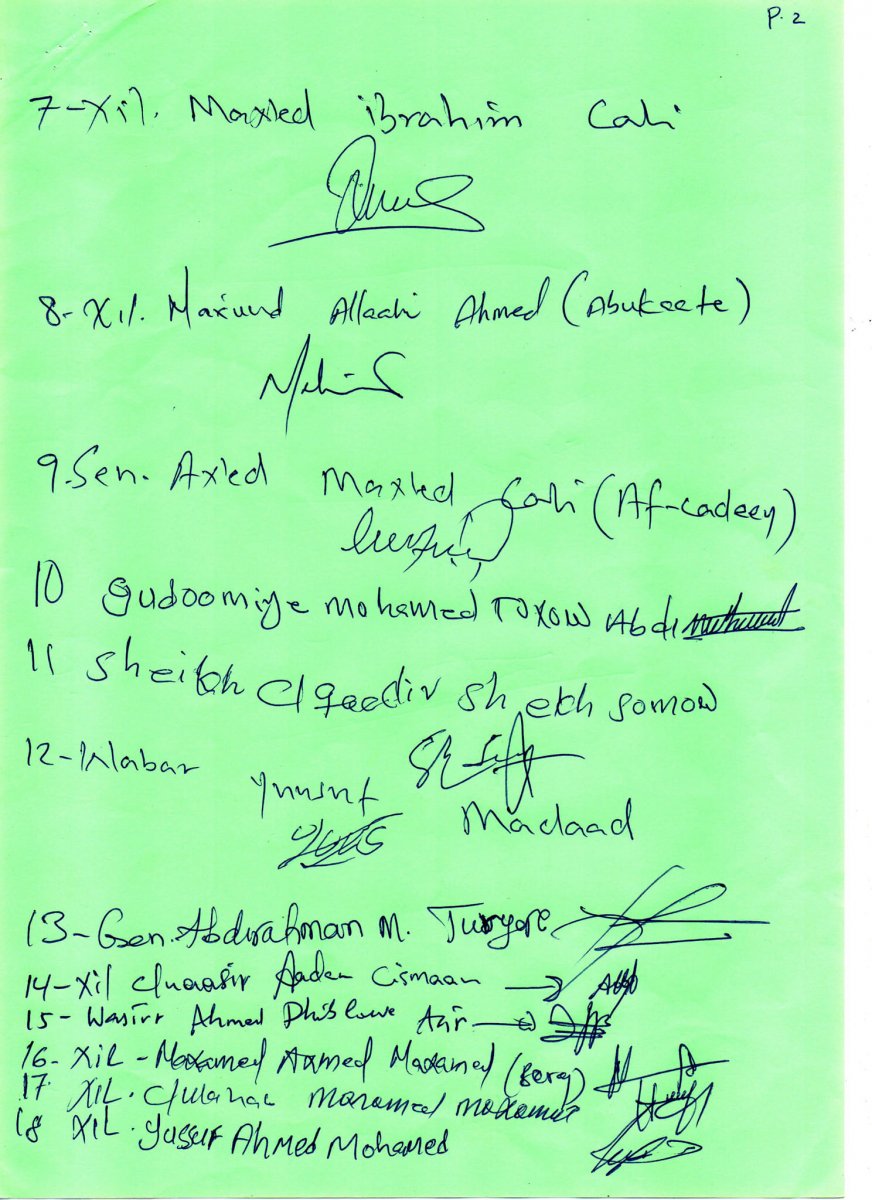 P. 2
7-Xil. Maxled ibrahim Cali
8-Xil. Allaahi Ahmed (Abukeete)
9.Sen. Axled Maxled Cali (Af-cadeey)
10 gudoomiye mohamed Toxow Abdi
11 Sheikh C/qaadir Sh ekh Somow
12-Wabar Yuusuf Madaad
13-Gen. Abdirahman M. Turyare
14-Xil C/naasir Aaden Cismaan
15- Wasiir Ahmed
16- XiL - Moxamed Axmed Maxamed
17 XIL.
18 XIL. Yussuf Ahmed Mohamed